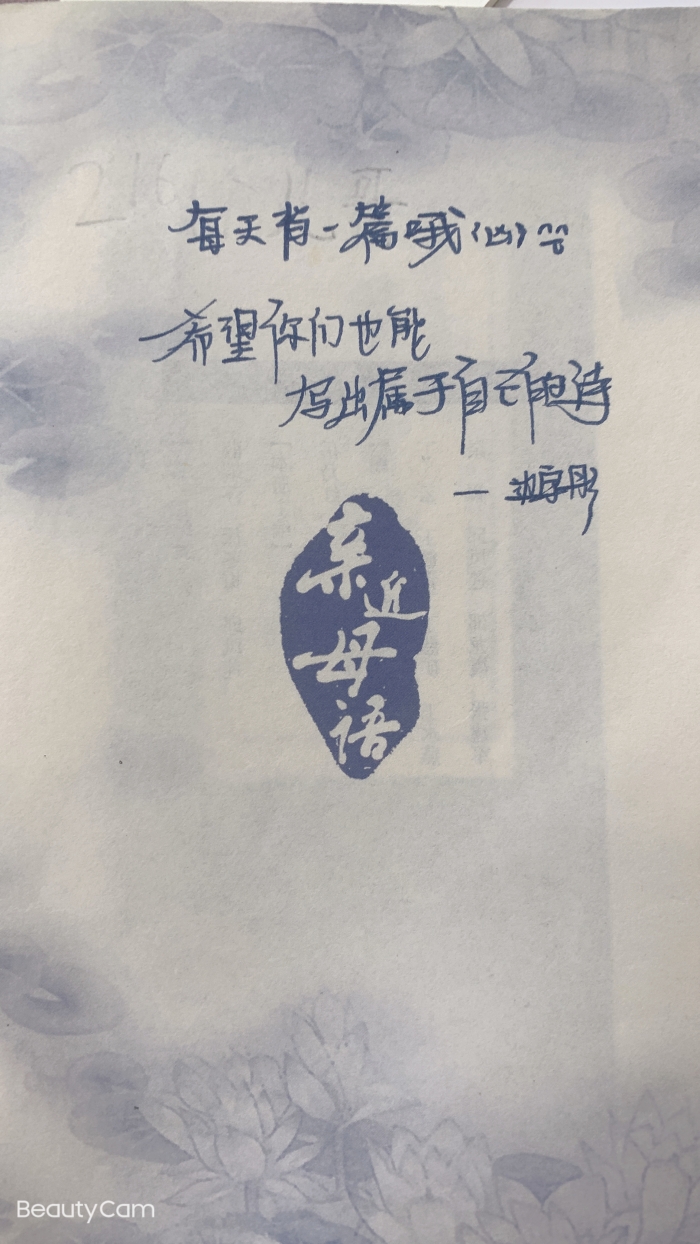 每天背一篇哦(凶)
希望你们也能
写出属于自己的诗
亲近
母语
BeautyCam